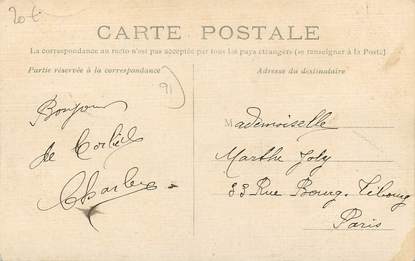 20 €
CARTE POSTALE
La correspondance au recto n'est pas acceptée par tous les pays étrangers (se renseigner à la Poste)
Partie réservée à la correspondance
Adresse du destinataire
91
Bonjour
de Corbeil
Charles
Mademoiselle
Marthe Joly
33 Rue Bourg-Tibourg
Paris